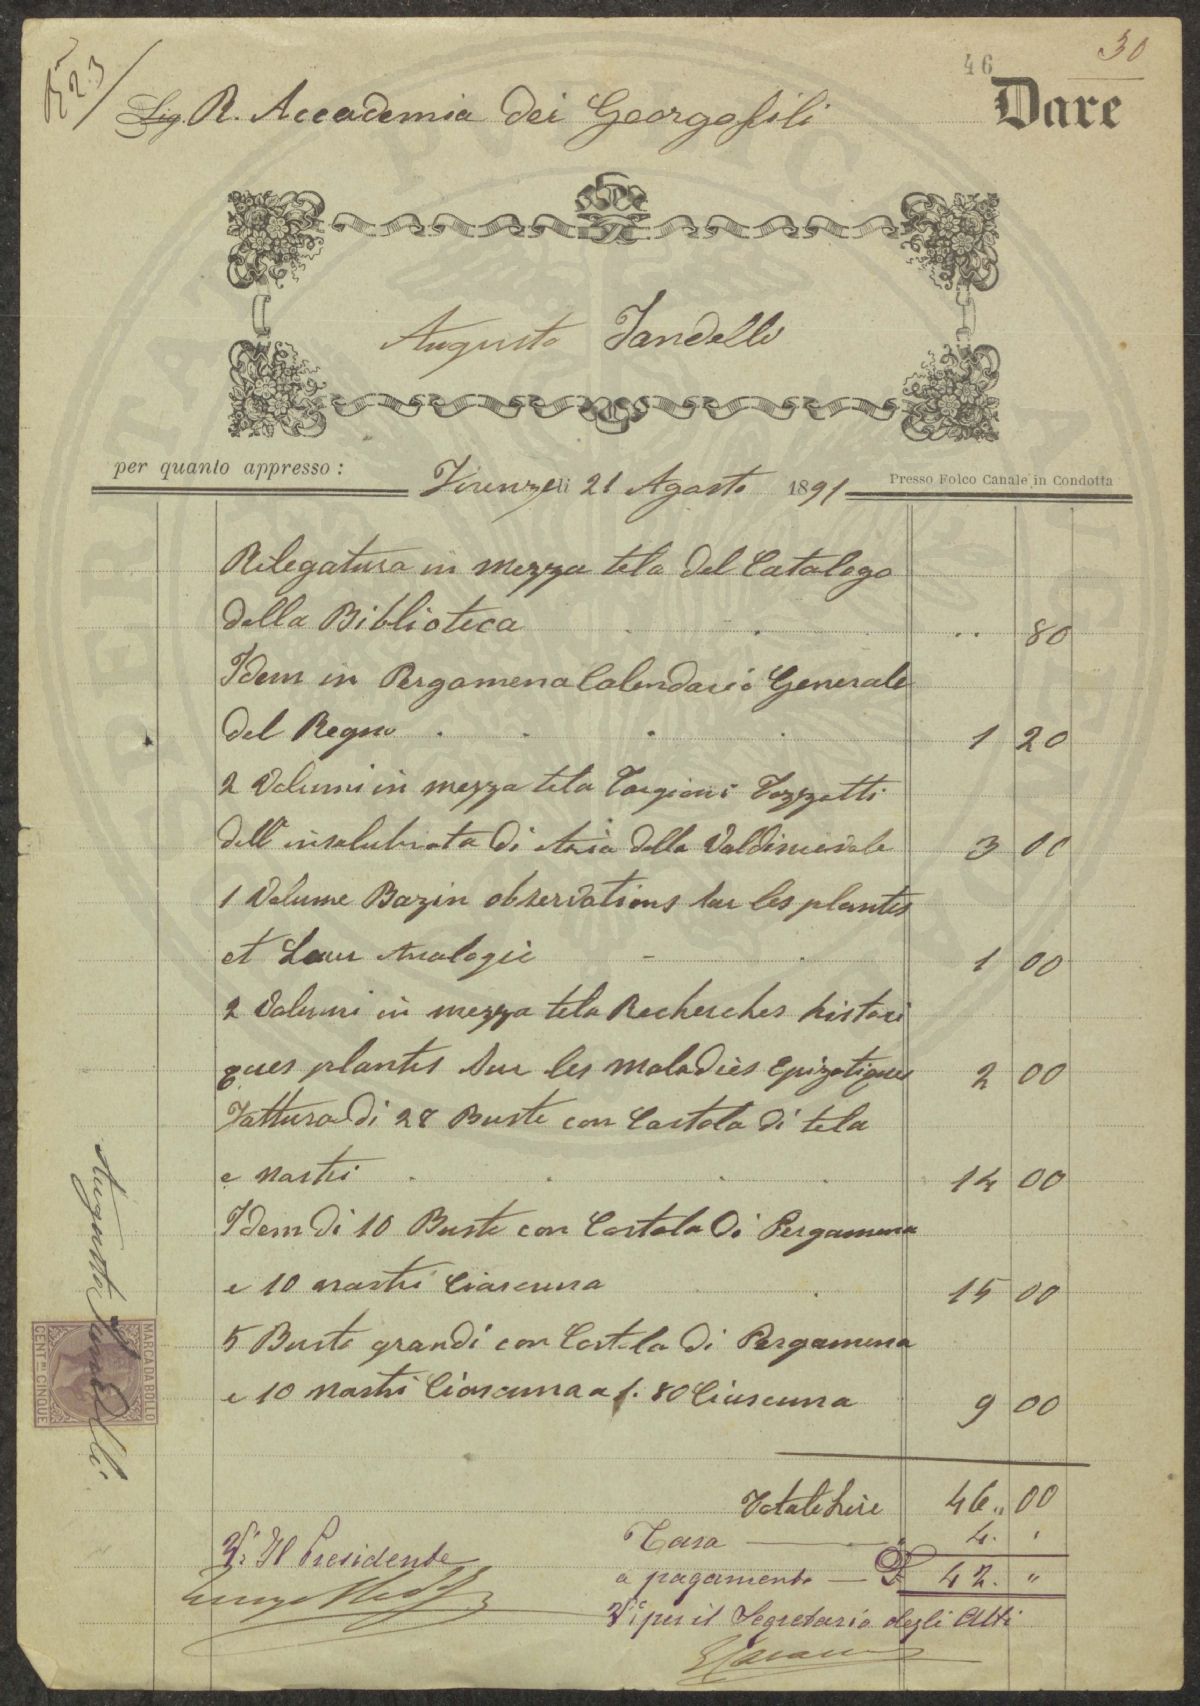 523
46
30
Sig. R. Accademia dei Georgofili
Dare
Augusto Jandelli
per quanto appresso:
Firenze li 21 Agosto 1891
Presso Folco Canale in Condotta
Rilegatura in mezza tela del Catalogo
della Biblioteca .. 80
Idem in Pergamena Calendario Generale
del Regno 1 20
2 Volumi in mezza tela Targioni Tozzetti
dell'insalubrata di Aria della Valdinievole 3 00
1 Volume Bazin observations sur les plantes
et Leur Analogie 1 00
2 Volumi in mezza tela Recherches histori
ques plantes Sur les maladies Epizotiques 2 00
Fattura di 28 Buste con Costola di tela
e nastri 14 00
Idem di 10 Buste con Costola di Pergamena
e 10 nastri Ciascuna 15 00
5 Buste grandi con Costola di Pergamena
e 10 nastri Ciascuna a 1. 80 Ciascuna 9 00
Totale Lire 46 00
Tara 4
a pagamento 42 "
Vo Il Presidente
Vo per il Segretario degli Atti
Augusto Jandelli
MARCA DA BOLLO
CENTmi CINQUE